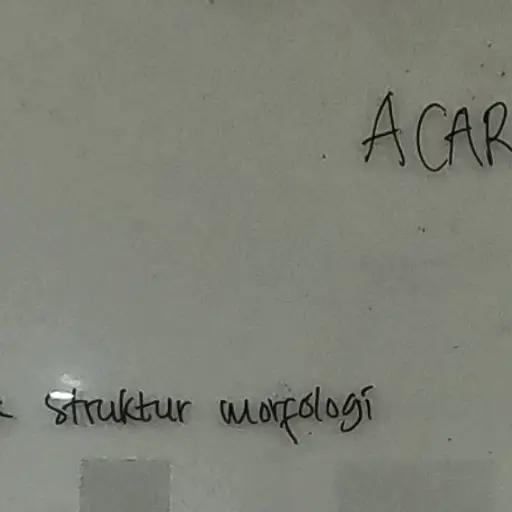 ACAR
struktur morfologi